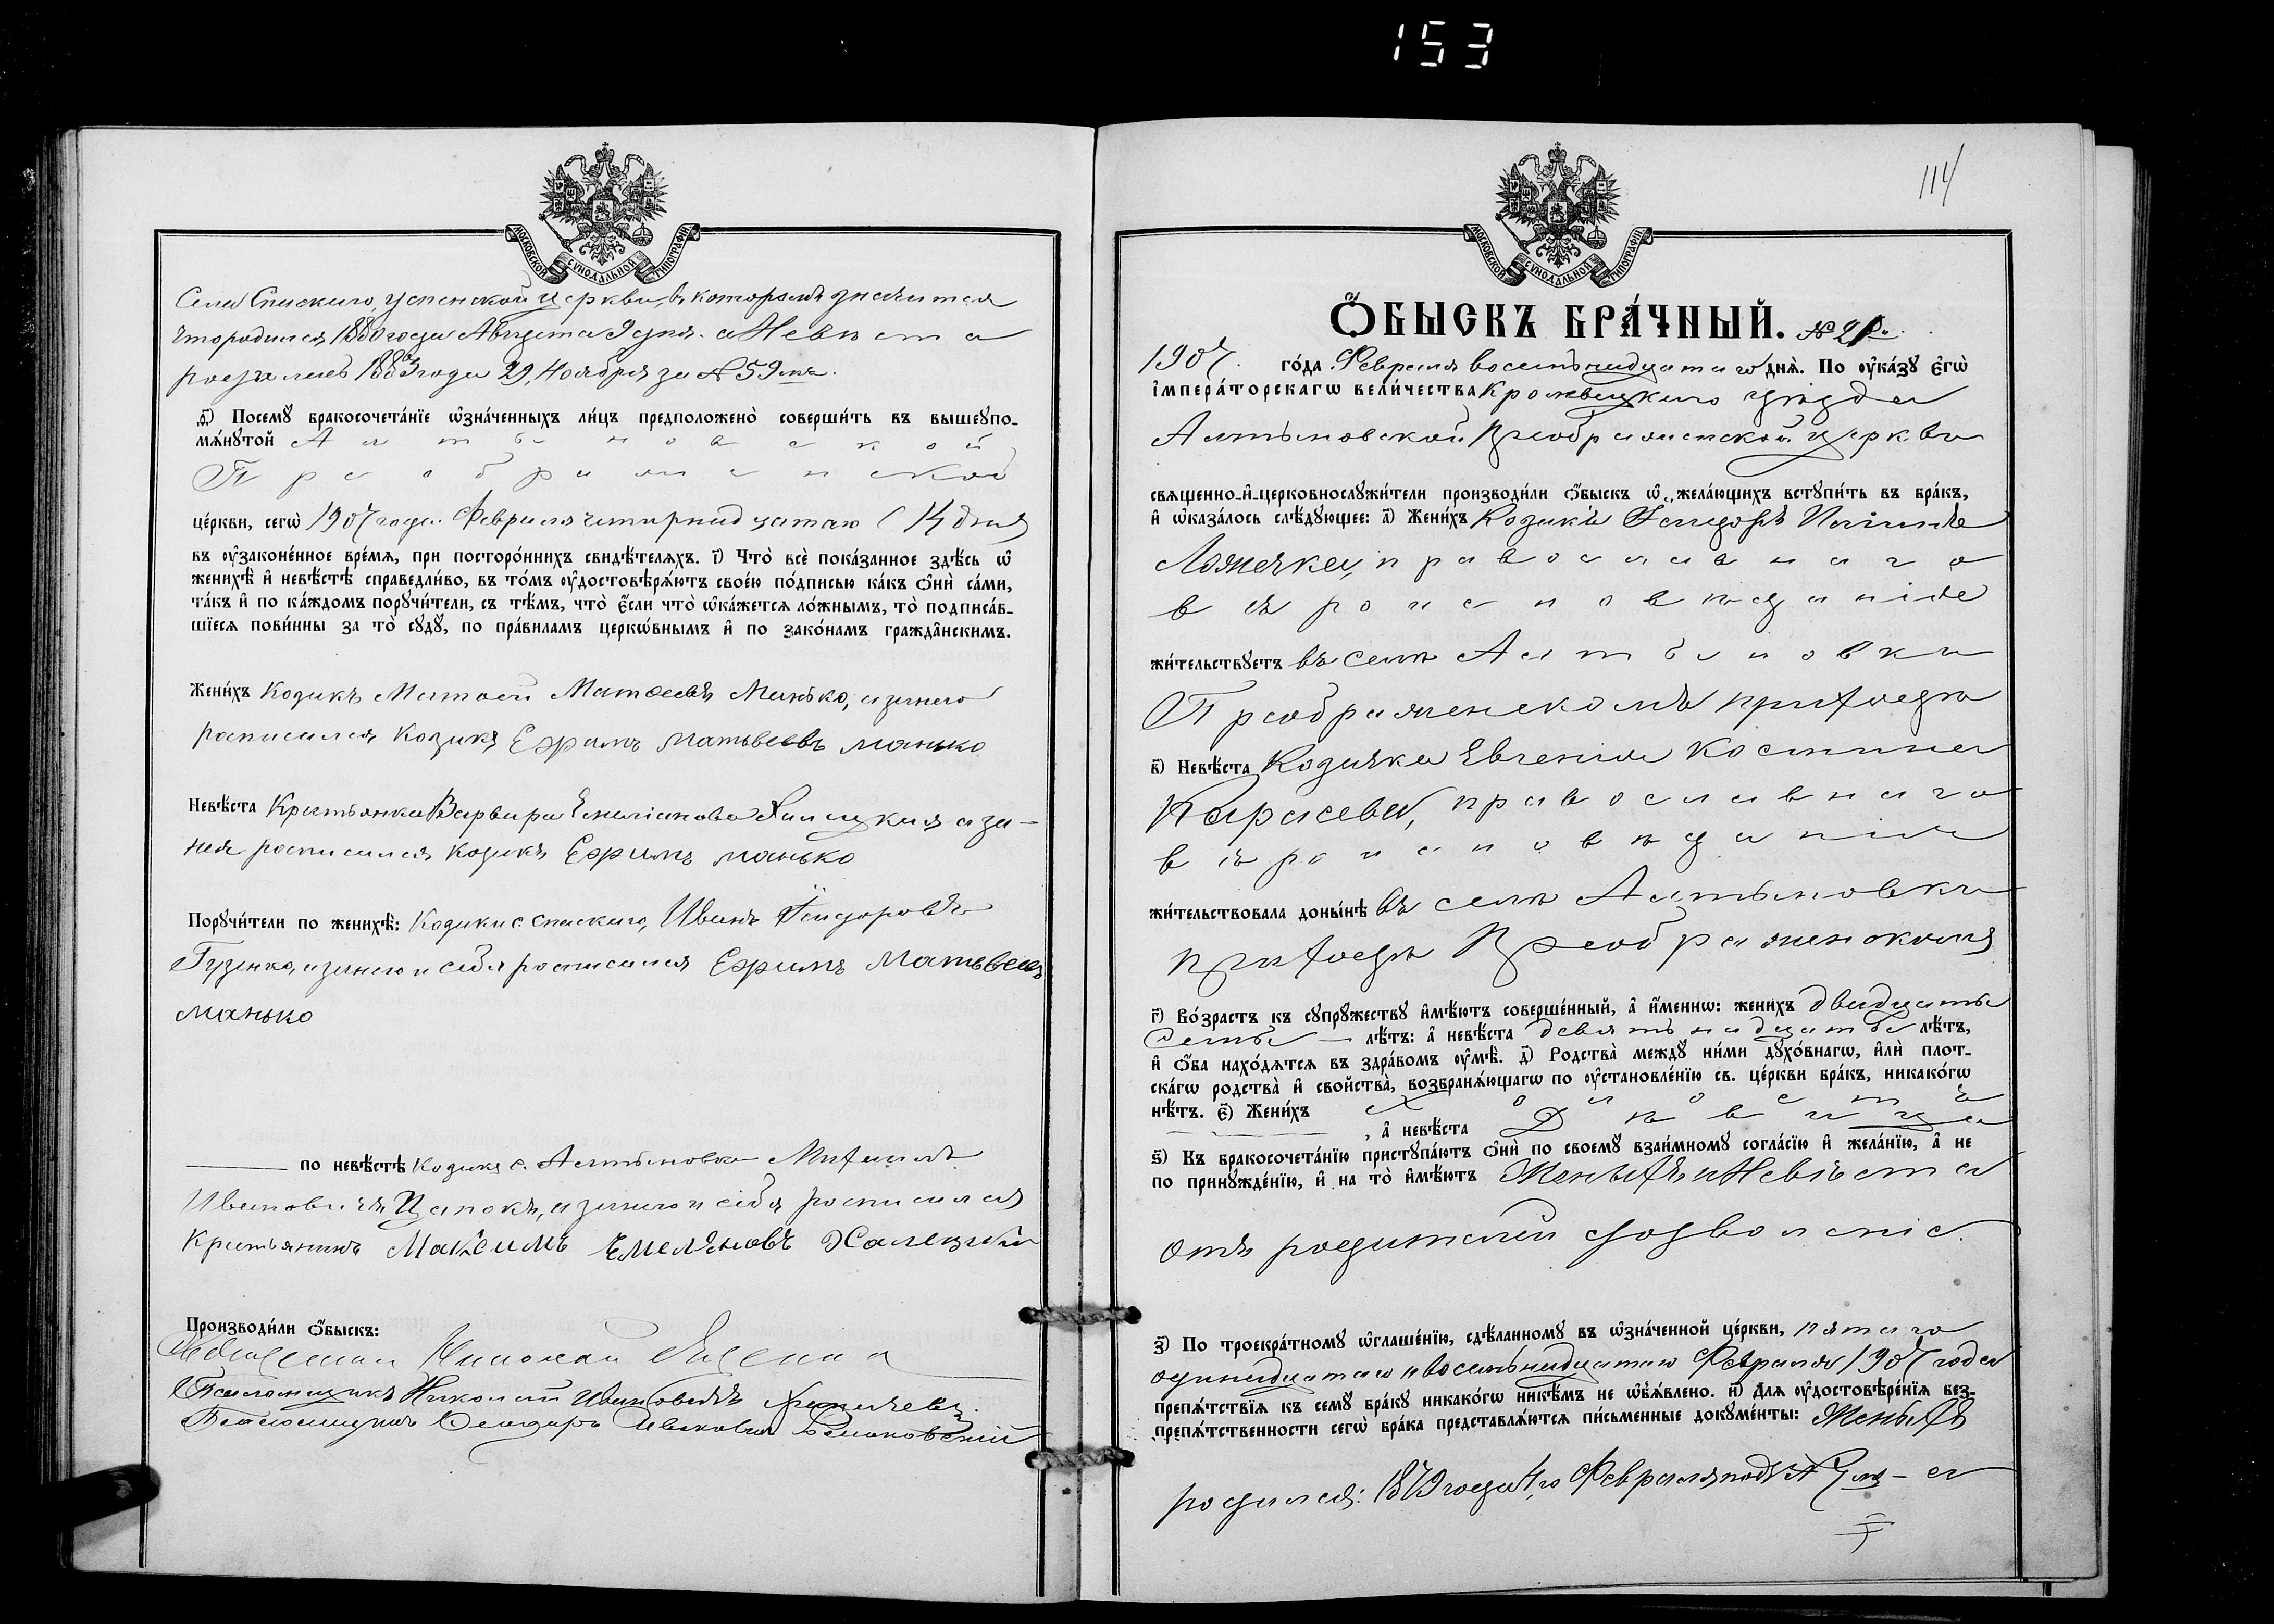 153
МОСКОВСКОЙ СѴНОДАЛЬНОЙ ТИПОГРАФІИ
Села Спаскаго, Успенской церкви, въ которомъ значится
что родился, 1880 года Августа 9 дня. а Невѣста
родилась 1883 года 29, Ноября за № 59мъ.
д҃) Посемꙋ бракосочета́нїе ѡ҆зна́ченныхъ ли́цъ предположено̀ соверши́ть въ вышеꙋпо-
мѧ́нꙋтой Алтыновской
Преображенской
це́ркви, сегѡ̀ 1907 года. Февраля четырнадцатаго (14 дня
въ ᲂу҆законе́нное вре́мѧ, при посторо́ннихъ свидѣ́телѧхъ. і҃) Что̀ всѐ пока́занное здѣ́сь ѡ҆
женихѣ̀ и҆ невѣ́стѣ справедли́во, въ то́мъ ᲂу҆достовѣрѧ́ютъ свое́ю по́дписью ка́къ ѻ҆нѝ са́ми,
та́къ и҆ по ка́ждомъ порꙋчи́тели, съ тѣ́мъ, что̀ є҆́сли что̀ ѡ҆ка́жетсѧ ло́жнымъ, то̀ подписа́в-
шїесѧ пови́нны за то̀ сꙋдꙋ̀, по пра́виламъ церкѡ́внымъ и҆ по зако́намъ гражда̑нскимъ.
Жени́хъ Козакъ Матвей Матвеевъ Манько, а за него
расписался, Козакъ Ефимъ Матвеевъ Манько
Невѣ́ста Крестьянка Варвара Емиліанова Халецкая а за-
нея росписался козакъ Ефимъ Манько
Порꙋчи́тели по женихѣ̀: Козаки с. Спаскаго, Иванъ Ісидоровъ
Гузенко, а за него и себя росписался Ефимъ Матвеевъ
Манько
по невѣ́стѣ Козакъ с. Алтыновки Михаилъ
Ивановичъ Цапокъ, а за него и себя росписался
Крестьянинъ Максимъ Емельяновъ Халецкій
Производи́ли ѻ҆́быскъ:
Псаломщикъ Николай Ивановичъ
Псаломщикъ Ивановичъ
114
МОСКОВСКОЙ СѴНОДАЛЬНОЙ ТИПОГРАФІИ
Ѻ҆́БЫСКЪ БРА́ЧНЫЙ. № 21й.
1907. го́да Февраля восемьнадцатаго днѧ̀. По ᲂу҆ка́зꙋ є҆гѡ̀
і҆мпера́торскагѡ вели́чества Кролевецкаго уѣзда
Алтыновской Преображенской церкви
свѧщенно-и҆-церковнослꙋжи́тели производи́ли ѻ҆́быскъ ѡ҆ жела́ющихъ встꙋпи́ть въ бра́къ,
и҆ ѡ҆каза́лось слѣ́дꙋющее: а҃) Жени́хъ Козакъ Ісидоръ
Ложечка, православнаго
вѣроисповѣданія
жи́тельствꙋетъ въ селѣ Алтыновки
Преображенскомъ приходѣ
в҃) Невѣ́ста Козачка Евгенія
Карасева, православнаго
вѣроисповѣданія
жи́тельствовала доны́нѣ въ селѣ Алтыновки
приходѣ Преображенскомъ
г҃) Во́зрастъ къ сꙋпрꙋ́жествꙋ и҆мѣ́ютъ соверше́нный, а҆ и҆́меннѡ: жени́хъ двадцать
семь лѣ́тъ: а҆ невѣ́ста девятьнадцать лѣ́тъ,
и҆ ѻ҆́ба нахо́дѧтсѧ въ здра́вомъ ᲂу҆мѣ̀. д҃) Родства̀ междꙋ̀ ни́ми дꙋхо́внагѡ, и҆лѝ плот-
ска́гѡ родства̀ и҆ свойства̀, возбранѧ́ющагѡ по ᲂу҆становле́нїю св. це́ркви бра́къ, никако́гѡ
нѣ́тъ. є҃) Жени́хъ холостъ
, а҆ невѣ́ста Дѣвица
ѕ҃) Къ бракосочета́нїю пристꙋпа́ютъ ѻ҆нѝ по своемꙋ̀ взаи́мномꙋ согла́сїю и҆ жела́нїю, а҆ не
по принꙋжде́нїю, и҆ на то̀ и҆мѣ́ютъ Женыхъ и Невѣста
отъ родителей дозволеніе.
з҃) По троекра́тномꙋ ѡ҆глаше́нїю, сдѣ́ланномꙋ въ ѡ҆зна́ченной це́ркви, пятаго
одинадцатаго и восемьнадцатаго Февраля 1907 года
препѧ́тствїѧ къ семꙋ̀ бра́кꙋ никако́гѡ никѣ́мъ не ѡ҆б̾ѧ́влено. и҃) Длѧ ᲂу҆достовѣре́нїѧ без-
препѧ́тственности сегѡ̀ бра́ка представлѧ́ютсѧ пи́сьменные докꙋме́нты: Женыхъ
родился: 1879 года 4го Февраля подъ № а